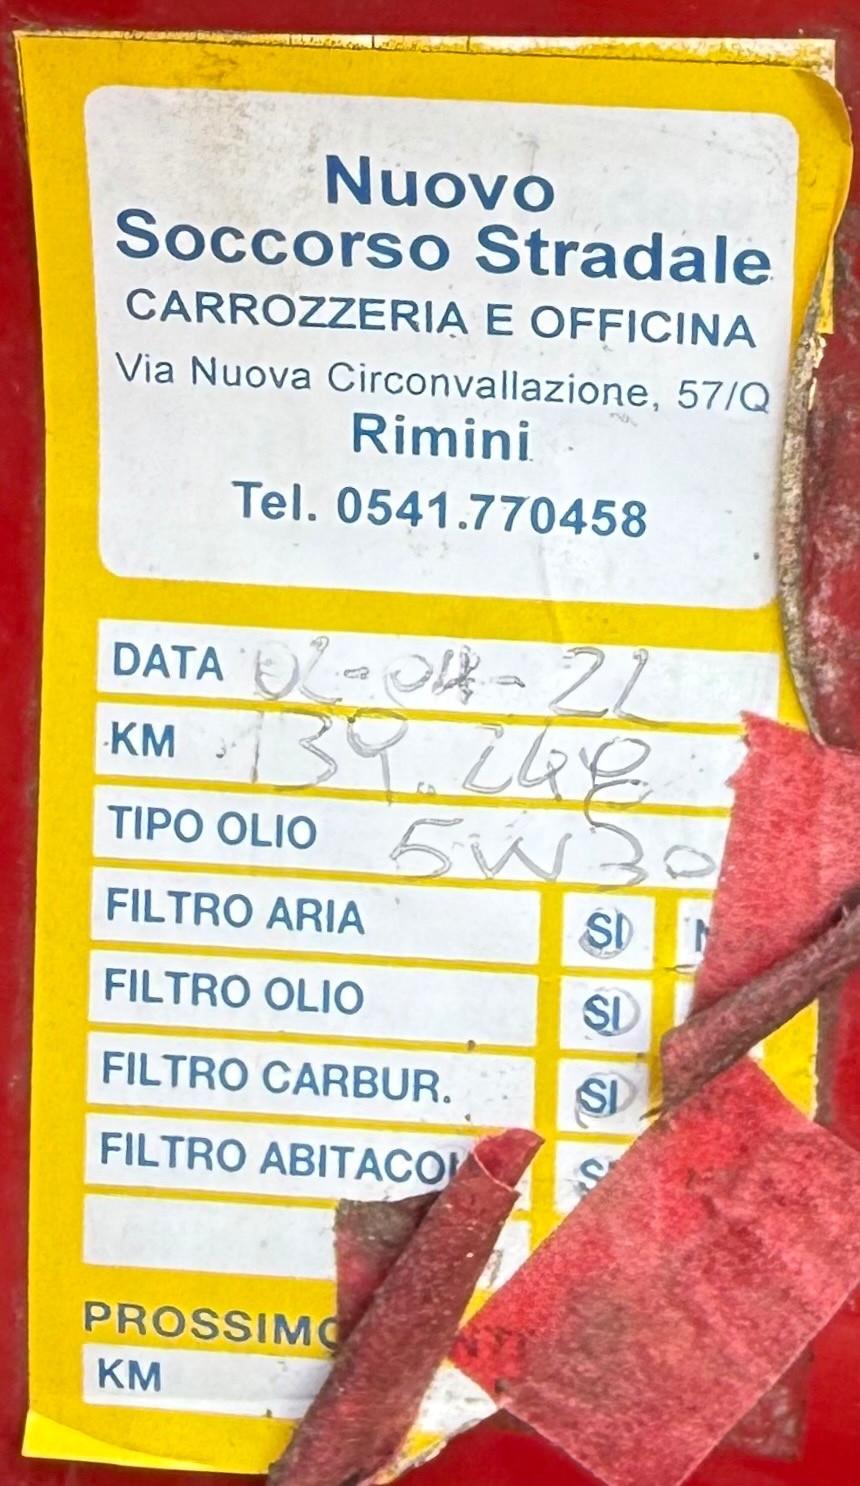 Nuovo
Soccorso Stradale
CARROZZERIA E OFFICINA
Via Nuova Circonvallazione, 57/Q
Rimini
Tel. 0541.770458
DATA 02-04-22
KM 139.248
TIPO OLIO 5W30
FILTRO ARIA SI
FILTRO OLIO SI
FILTRO CARBUR. SI
FILTRO
PROSSIMO
KM